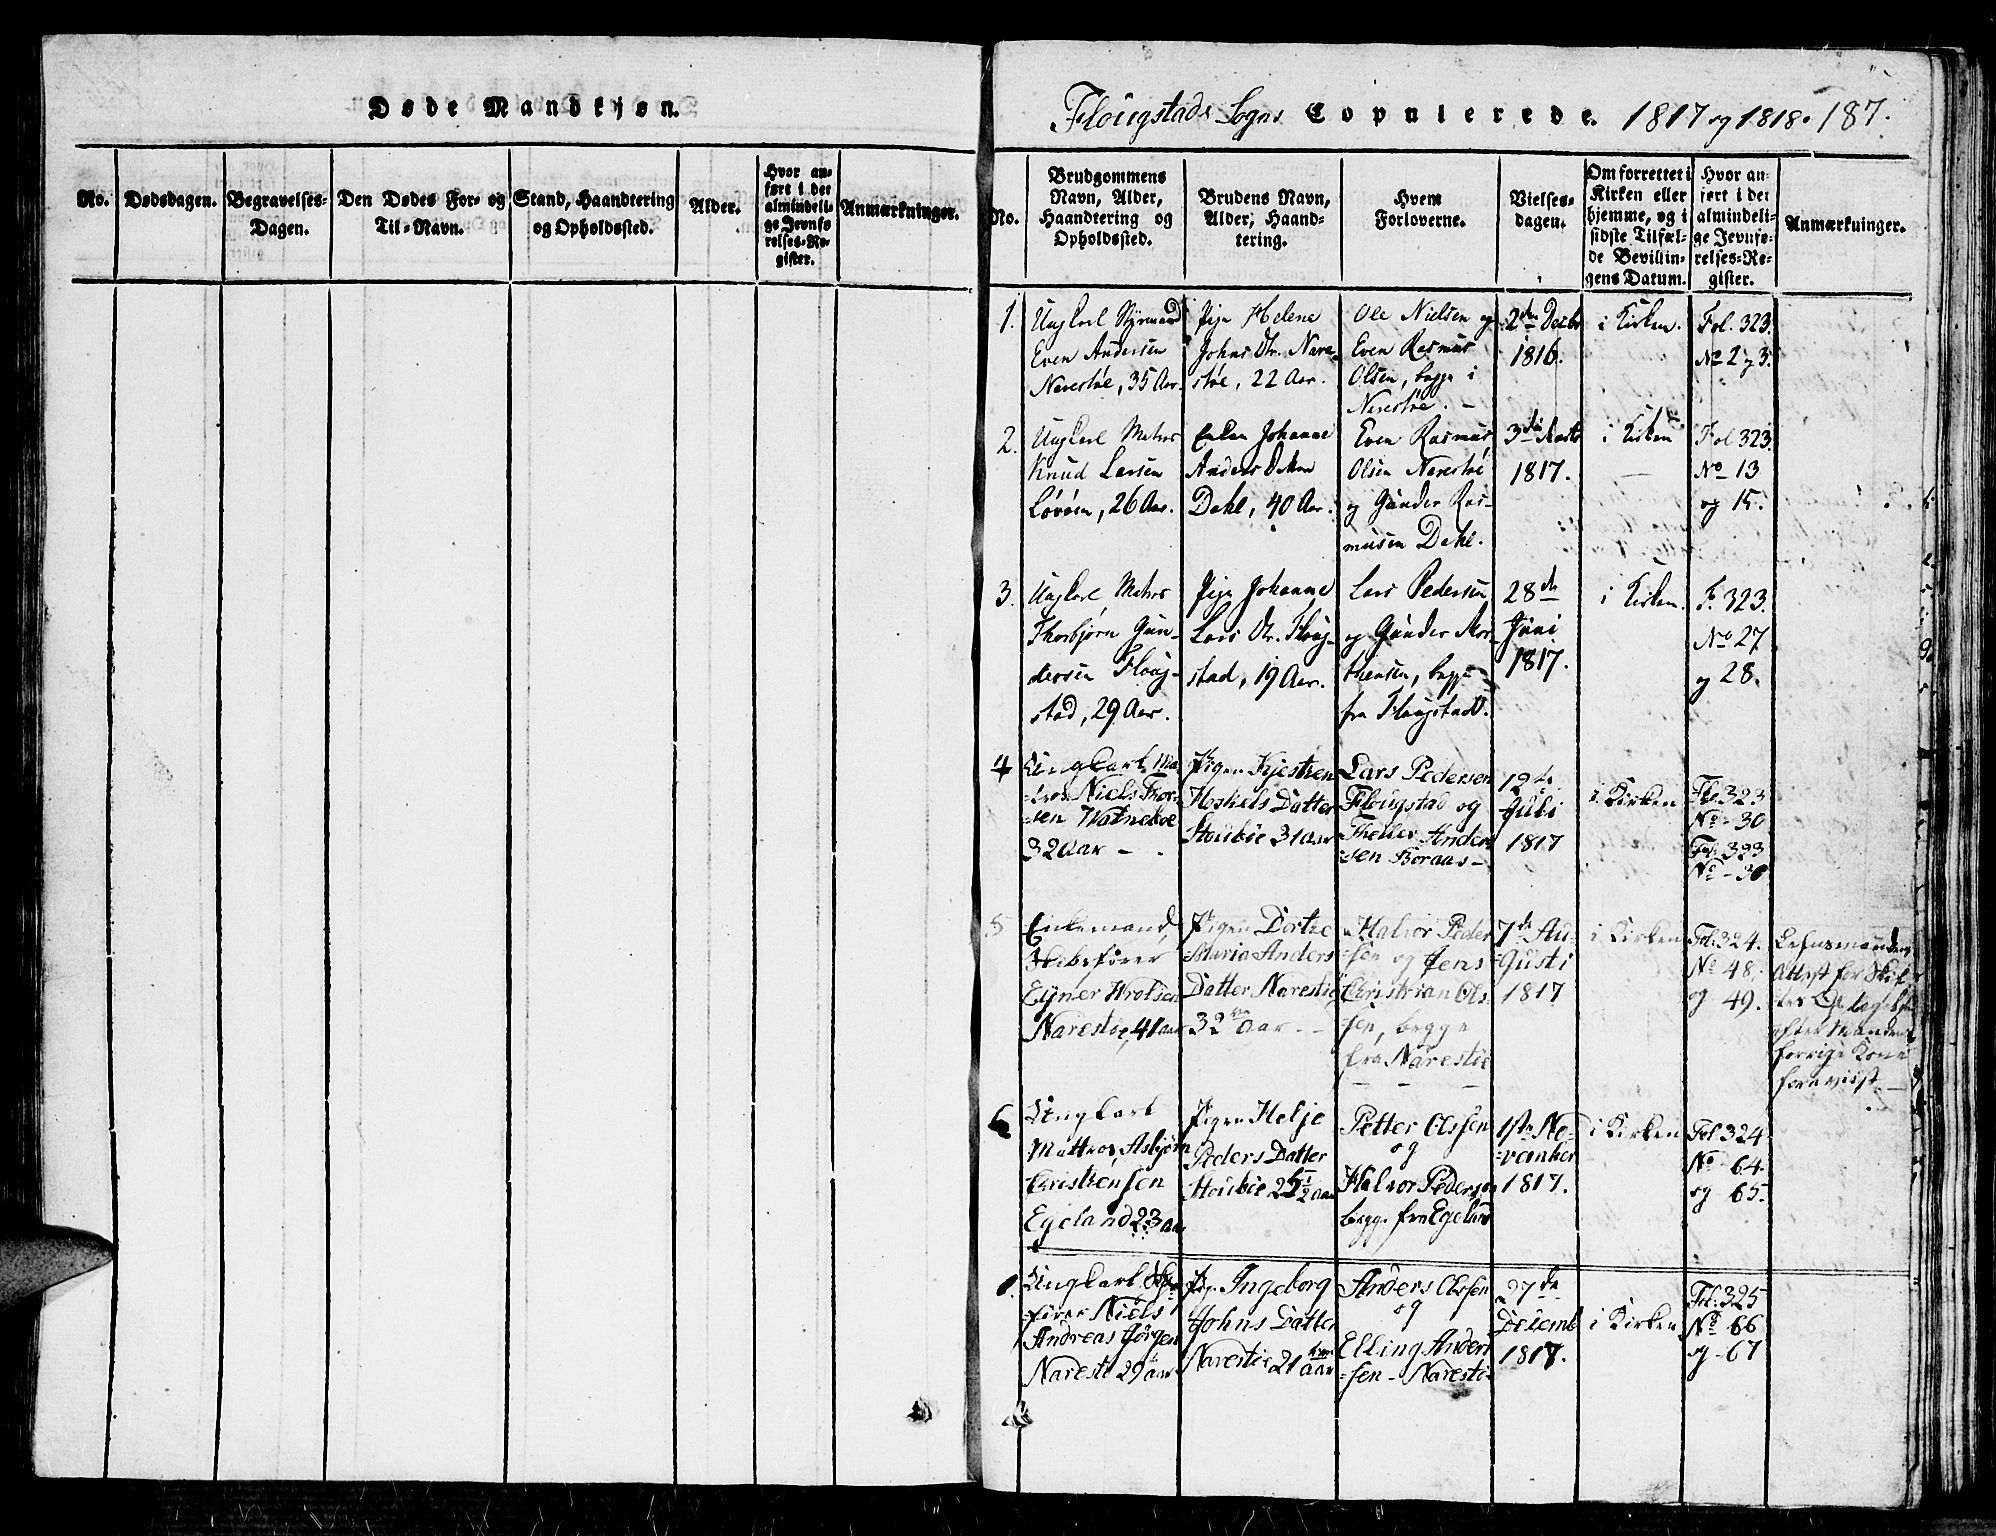 Døde Mandkjøn.
No.
Dødsdagen.
Begravelses-
Dagen.
Den Dødes For- og
Til-Navn.
Stand, Haandtering
og Opholdssted.
Alder.
Hvor an-
ført i det
almindeli-
ge Jevnfø-
relses-Re-
gister.
Anmærkninger.
Flougstads Sogns Copulerede. 1817 og 1818. 187.
No.
Brudgommens
Navn, Alder,
Haandtering og
Opholdssted.
Brudens Navn,
Alder, Haand-
tering.
Hvem
Forloverne.
Vielses-
dagen.
Om forrettet i
Kirken eller
hjemme, og i
sidste Tilfæl-
de Bevillin-
gens Datum.
Hvor an-
ført i det
almindeli-
ge Jevnfø-
relses-Re-
gister.
Anmærkninger.
1.
Ungkarl Styrmand
Even Andersen
Narestøe, 35 Aar.
Pige Helene
Johns Dtr. Nare-
støe, 22 Aar.
Ole Nielsen og
Even Rasmus
Olsen, begge i
Narestøe. -
2den Decbr
1816.
i Kirken.
Fol. 323.
No 2 og 3.
2.
Ungkarl Matros
Knud Larsen
Løvøen, 26 Aar.
Enken Johanne
Anders Datter
Dahl, 40 Aar.
Even Rasmus
Olsen Narestøe
og Gunder Ras-
musen Dahl.
3die Marts
1817.
i Kirken
Fol 323.
No 13
og 15.
3.
Ungkarl Matros
Thorbjørn Gun-
dersen Floug-
stad, 29 Aar.
Pige Johanne
Lars Dtr. Floug-
stad, 19 Aar.
Lars Pedersen
og Gunder Mor-
thensen, begge
fra Flougstad.
28de
Juni
1817.
i Kirken.
F. 323.
No 27
og 28.
4
Ungkarl Ma-
-tros Niels Thor-
-sen Watneboe
32 Aar -
Pigen Kjestren
Hoskiels Datter
Stouböe 31 aar
Lars Pedersen
Flougstad og
Theller Ander
-sen Boraas -
12te
Juli
1817
i Kirken
Fol. 323
No - 30
Fol. 323
No - 30
5
Enkemand,
Skibsfører
Ejner Wrolsen
Narestøe, 41 aar
Pigen Dorthe
Maria Anders
Datter Narestöe
32 aar - -
Halvor Peder
-sen og Jens
Christian Ols-
sen, begge
fra Narestöe
7de Au-
-gusti
1817
i Kirken
Fol. 324.
No 48.
og 49.
Lensmandens
Attest for Skif-
efter Mandens
forrige Kone
foreviist -
6
Ungkarl
Mattros Asbjörn
Christensen
Egeland 23 aar
Pigen Helje
Peders Datter
Stouböe 25 1/2 aar
Petter Olssen
og
Halvor Pedersen
begge fra Egeland
1ste No-
-vember
1817.
i Kirken
Fol. 324.
No 64.
og 65.
1.
Ungkarl
fører Niels
Andreas Jörgen
Narestö 29 aar
Pig. Ingeborg
Johns Datter
Narestöe 21 aar
Anders Olssen
og
Elling Anders
-sen - Narestö
27de
Decemb
1817.
i Kirken
Fol. 325
No 66
og - 67